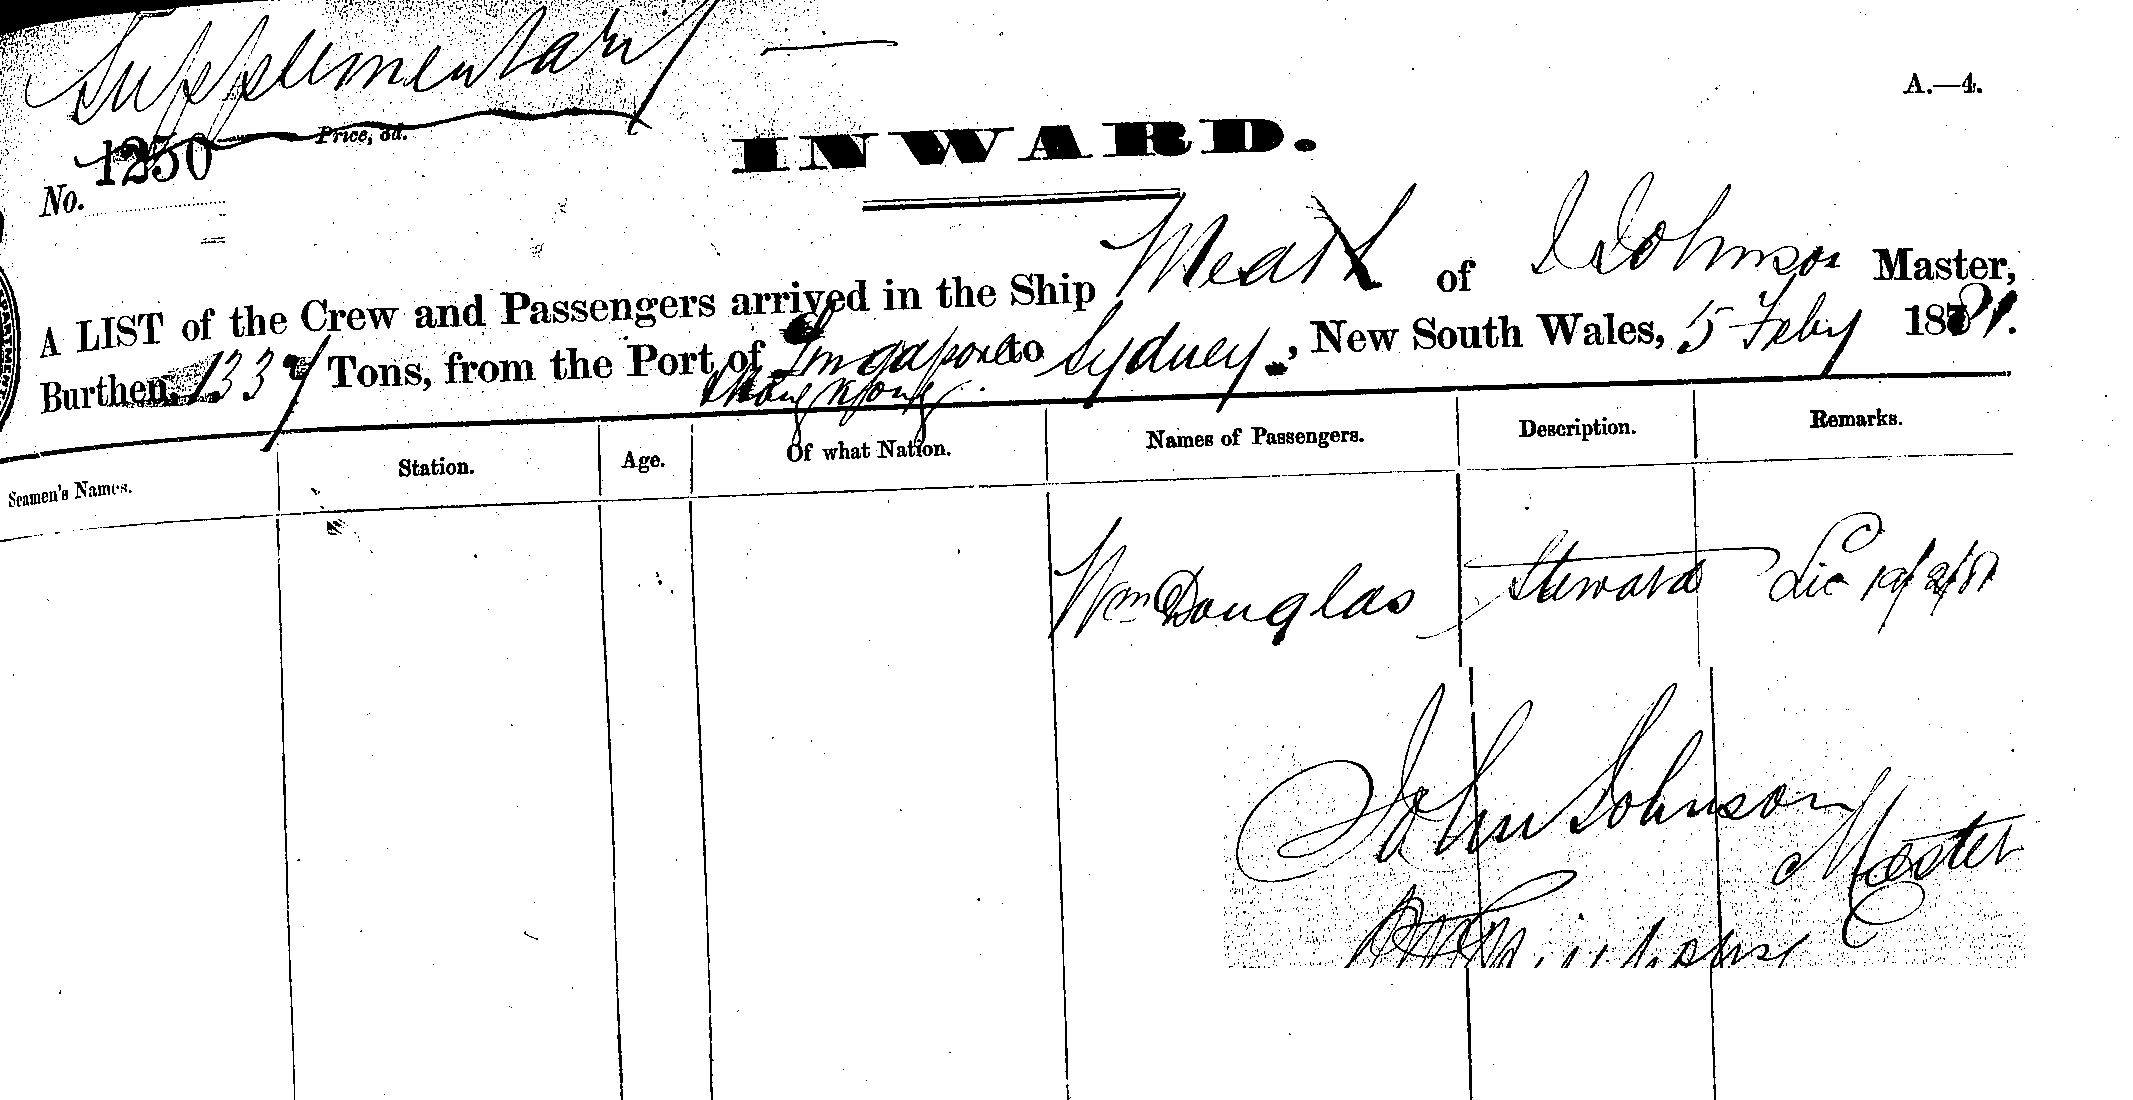 Supplementary
A.—4.
No. 1250
Price, 3d.
INWARD.
A LIST of the Crew and Passengers arrived in the Ship Meath of J Johnson Master,
Burthen, 1337 Tons, from the Port of Singapore to Sydney, New South Wales, 5 Feby 1881.
Seamen's Names. Station. Age. Of what Nation. Names of Passengers. Description. Remarks.
Wm Douglas Steward
John Johnson
Master